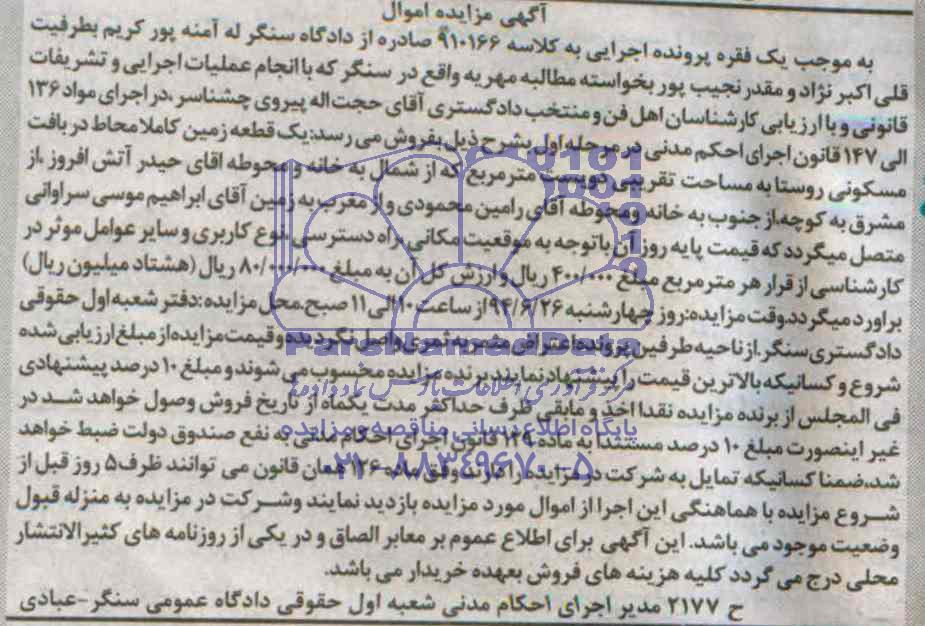 آگهی مزایده اموال
به موجب یک فقره پرونده اجرایی به کلاسه ۹۱۰۱۶۶ صادره از دادگاه سنگر له آمنه پور کریم بطرفیت
قلی اکبر نژاد و مقدر نجیب پور بخواسته مطالبه مهریه واقع در سنگر که با انجام عملیات اجرایی و تشریفات
قانونی و با ارزیابی کارشناسان اهل فن و منتخب دادگستری آقای حجت اله پیروی چشناسر ،در اجرای مواد ۱۳۶
الی ۱۴۷ قانون اجرای احکم مدنی در مرحله اول بشرح ذیل بفروش می رسد:یک قطعه زمین کاملا محاط در بافت
مسکونی روستا به مساحت تقریبی دویست مترمربع که از شمال به خانه و محوطه اقای حیدر آتش افروز ،از
مشرق به کوچه،از جنوب به خانه ومحوطه آقای رامین محمودی و از مغرب به زمین آقای ابراهیم موسی سراوانی
متصل میگردد که قیمت پایه روز آن باتوجه به موقعیت مکانی،راه دسترسی،نوع کاربری و سایر عوامل موثر در
کارشناسی از قرار هر مترمربع مبلغ ۴۰۰/۰۰۰ ریال و ارزش کل آن به مبلغ ۸۰/۰۰۰/۰۰۰ ریال (هشتاد میلیون ریال)
براورد میگردد.وقت مزایده:روز چهارشنبه ۹۴/۶/۲۶ از ساعت ۱۰ الی ۱۱ صبح.محل مزایده:دفتر شعبه اول حقوقی
دادگستری سنگر.از ناحیه طرفین پرونده اعتراض مثمر به ثمری واصل نگردیده و قیمت مزایده از مبلغ ارزیابی شده
شروع و کسانیکه بالاترین قیمت را پیشنهاد نمایند برنده مزایده محسوب می شوند و مبلغ ۱۰ درصد پیشنهادی
فی المجلس از برنده مزایده نقدا اخذ و مابقی ظرف حداکثر مدت یکماه از تاریخ فروش وصول خواهد شد در
غیر اینصورت مبلغ ۱۰ درصد مستندا به ماده ۱۲۹ قانون اجرای احکام مدنی به نفع صندوق دولت ضبط خواهد
شد.ضمنا کسانیکه تمایل به شرکت در مزایده را دارند وفق ماده ۱۲۶ همان قانون می توانند ظرف ۵ روز قبل از
شروع مزایده با هماهنگی این اجرا از اموال مورد مزایده بازدید نمایند وشرکت در مزایده به منزله قبول
وضعیت موجود می باشد. این آگهی برای اطلاع عموم بر معابر الصاق و در یکی از روزنامه های کثیرالانتشار
محلی درج می گردد کلیه هزینه های فروش بعهده خریدار می باشد.
ح ۲۱۷۷ مدیر اجرای احکام مدنی شعبه اول حقوقی دادگاه عمومی سنگر-عبادی
ParsNamadData
پایگاه اطلاع رسانی مناقصه و مزایده
۰۲۱-۸۸۳۴۹۶۷۰-۵